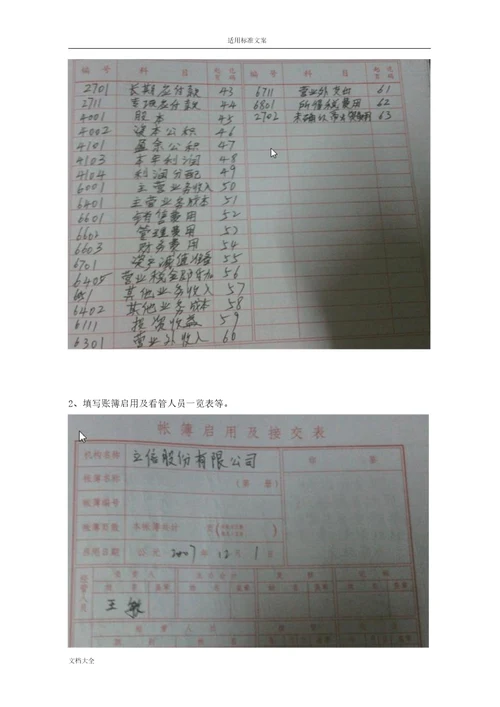 适用标准文案
编号 科目 起讫页码 编号 科目 起讫页码
2701 长期应付款 43 6711 营业外支出 61
2711 专项应付款 44 6801 所得税费用 62
4001 股本 45 2702 未确认融资费用 63
4002 资本公积 46
4101 盈余公积 47
4103 本年利润 48
4104 利润分配 49
6001 主营业务收入 50
6401 主营业务成本 51
6601 销售费用 52
6602 管理费用 53
6603 财务费用 54
6701 资产减值准备 55
6405 营业税金及附加 56
6051 其他业务收入 57
6402 其他业务成本 58
6111 投资收益 59
6301 营业外收入 60
2、填写账簿启用及看管人员一览表等。
帐簿启用及接交表
机构名称 立信股份有限公司
帐簿名称 (第 册)
帐簿编号
帐簿页数 本帐簿共计 页
启用日期 公元 2007年 12月 1日
经管人员 负责人
王敏
文档大全